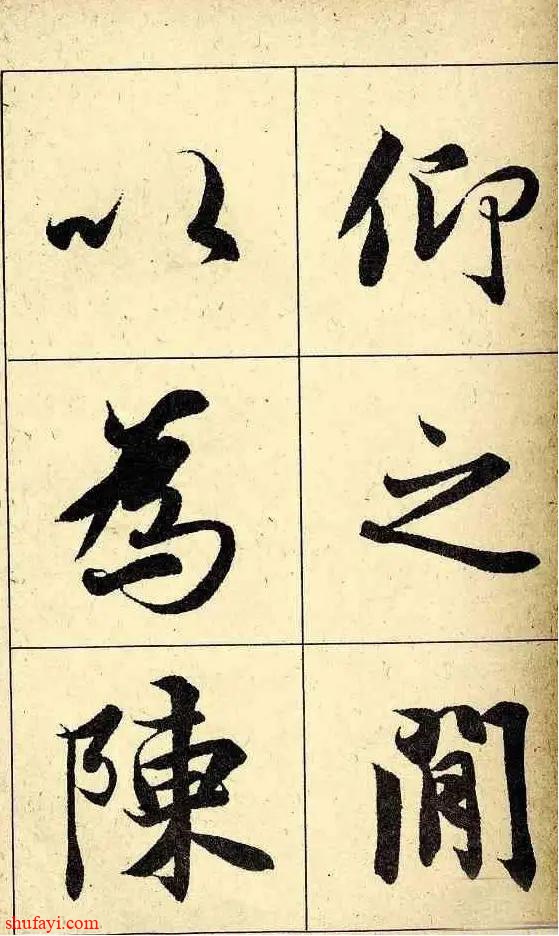 仰之閒
以為陳
shufayi.com